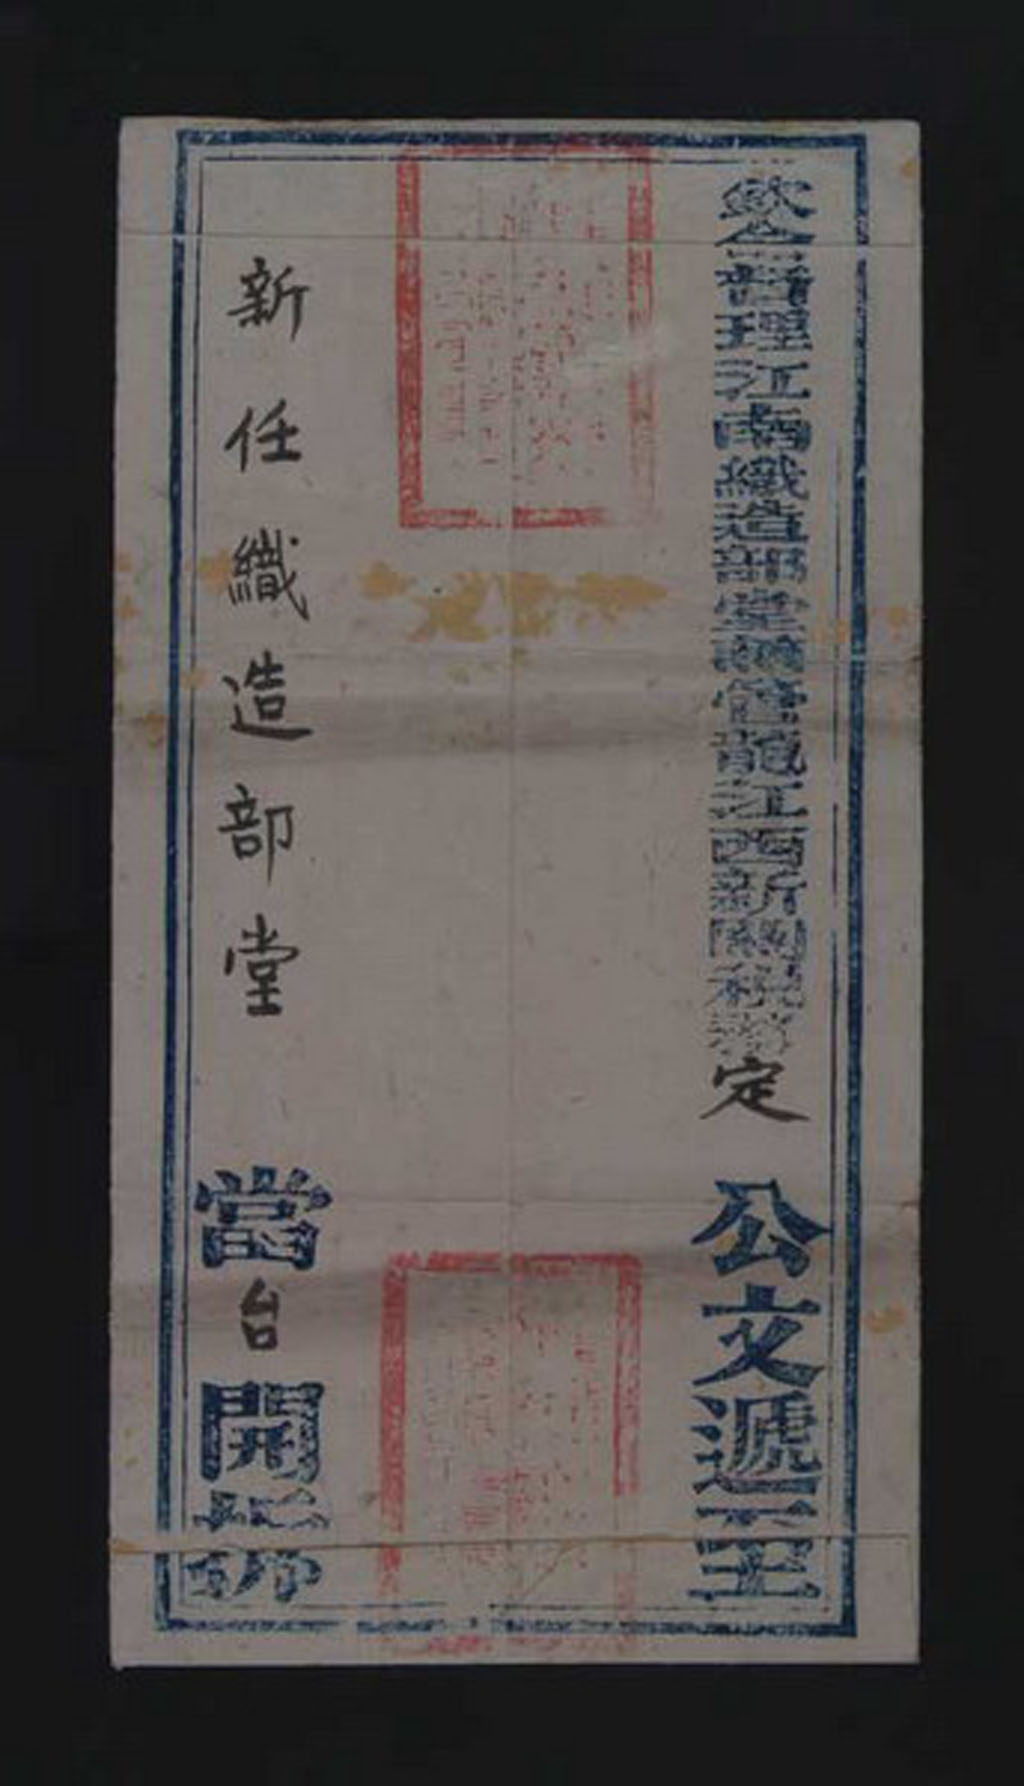 欽命督理江南織造部堂兼管龍江西新關稅務定 公文遞至
新任織造部堂 當台開拆